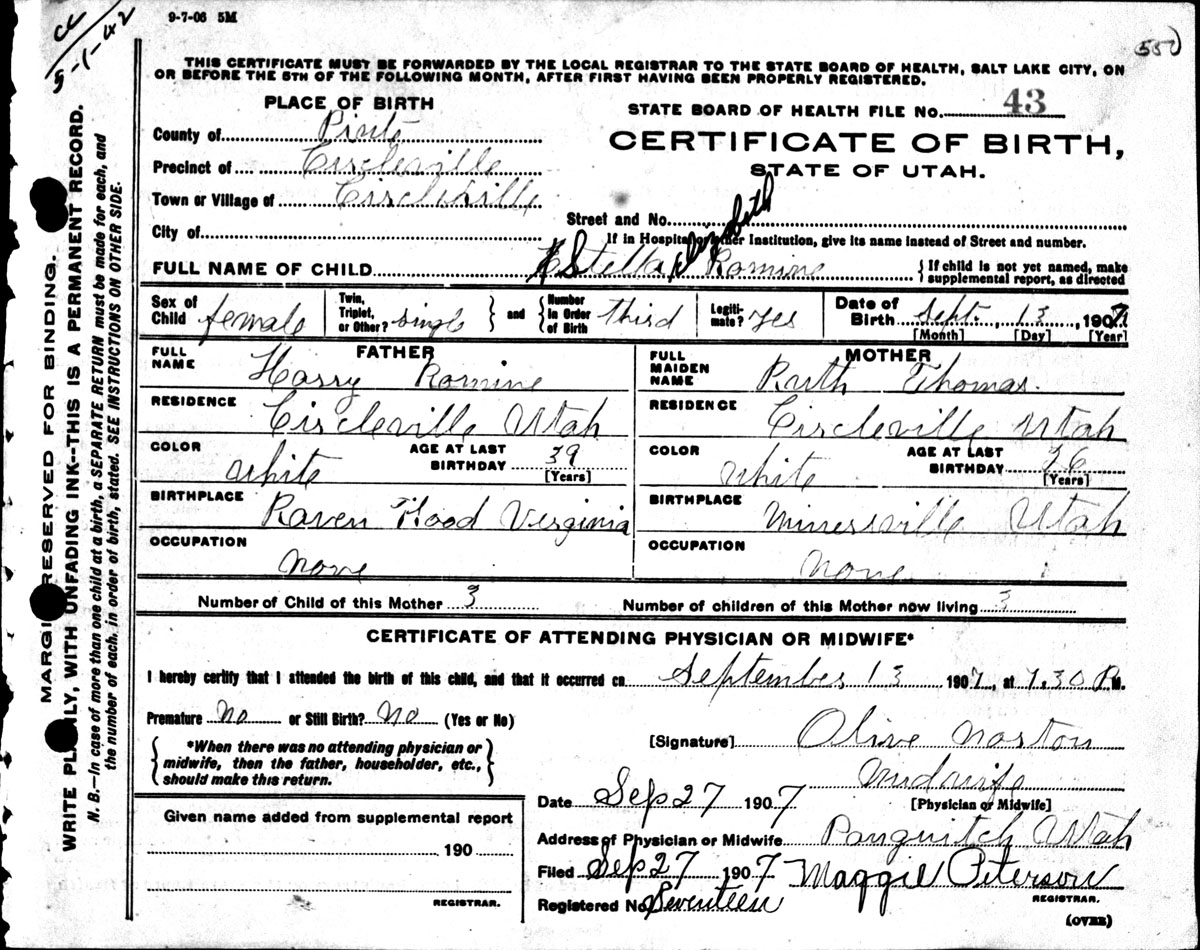 CC
5-1-42
9-7-06 5M
550
THIS CERTIFICATE MUST BE FORWARDED BY THE LOCAL REGISTRAR TO THE STATE BOARD OF HEALTH, SALT LAKE CITY, ON
OR BEFORE THE 5TH OF THE FOLLOWING MONTH, AFTER FIRST HAVING BEEN PROPERLY REGISTERED.
PLACE OF BIRTH
STATE BOARD OF HEALTH FILE No. 43
County of Piute
CERTIFICATE OF BIRTH,
Precinct of Circleville
STATE OF UTAH.
Town or Village of Circleville
Street and No.
City of
If in Hospital or other Institution, give its name instead of Street and number.
FULL NAME OF CHILD Stella Elizabeth Romine
{ If child is not yet named, make
supplemental report, as directed
Sex of Child female
Twin, Triplet, or Other? single } and { Number in Order of Birth third
Legitimate? yes
Date of Birth Sept. 13, 1907
[Month] [Day] [Year]
FATHER
FULL NAME Harry Romine
RESIDENCE Circleville Utah
COLOR white AGE AT LAST BIRTHDAY 39 [Years]
BIRTHPLACE Raven Hood Virginia
OCCUPATION None
MOTHER
FULL MAIDEN NAME Ruth Thomas.
RESIDENCE Circleville Utah
COLOR white AGE AT LAST BIRTHDAY 26 [Years]
BIRTHPLACE Minersville Utah
OCCUPATION None
Number of Child of this Mother 3 Number of children of this Mother now living 3
CERTIFICATE OF ATTENDING PHYSICIAN OR MIDWIFE*
I hereby certify that I attended the birth of this child, and that it occurred on September 13 1907, at 7.30 P.M.
Premature No or Still Birth? No (Yes or No)
{ *When there was no attending physician or
midwife, then the father, householder, etc.,
should make this return. }
[Signature] Olive Norton
Midwife
[Physician or Midwife]
Date Sep 27 1907
Address of Physician or Midwife Panguitch Utah
Filed Sep 27 1907 Maggie Peterson
REGISTRAR.
Registered No. Seventeen
(OVER)
Given name added from supplemental report
190
REGISTRAR.
MARGIN RESERVED FOR BINDING.
WRITE PLAINLY, WITH UNFADING INK--THIS IS A PERMANENT RECORD.
N. B.—In case of more than one child at a birth, a SEPARATE RETURN must be made for each, and
the number of each, in order of birth, stated. SEE INSTRUCTIONS ON OTHER SIDE.